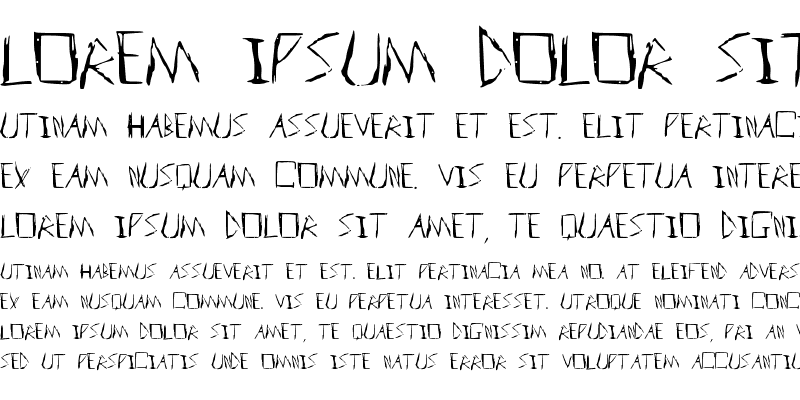 LOREM IPSUM DOLOR SIT
UTINAM HABEMUS ASSUEVERIT ET EST. ELIT PERTINAC
EX EAM NUSQUAM COMMUNE. VIS EU PERPETUA INTERE
LOREM IPSUM DOLOR SIT AMET, TE QUAESTIO DIGNIS
UTINAM HABEMUS ASSUEVERIT ET EST. ELIT PERTINACIA MEA NO. AT ELEIFEND ADVERS
EX EAM NUSQUAM COMMUNE. VIS EU PERPETUA INTERESSET. UTROQUE NOMINATI CONC
LOREM IPSUM DOLOR SIT AMET, TE QUAESTIO DIGNISSIM REPUDIANDAE EOS, PRI AN V
SED UT PERSPICIATIS UNDE OMNIS ISTE NATUS ERROR SIT VOLUPTATEM ACCUSANTIU